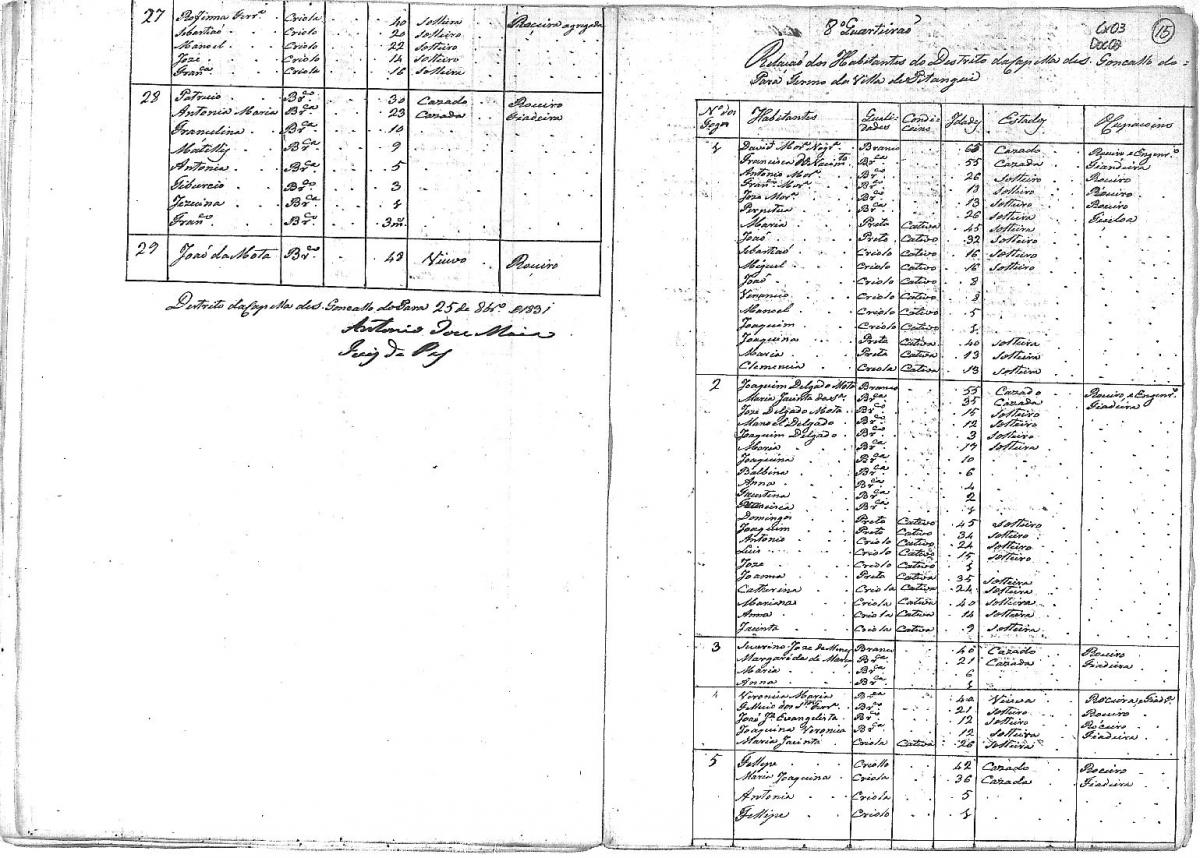 27 Rofinna Ferr.ª Criola 40 Solteira Roceira agregada
Sebastiaõ Criolo 20 Solteiro
Manoel Criolo 22 Solteiro
Joze Criolo 14 Solteiro
Fran.ca Criola 16 Solteira
28 Patricio Br.co 30 Cazado Roceiro
Antonia Maria Br.ca 23 Cazada Fiadeira
Francelina Br.ca 10
Br.ca 9
Antonia Br.ca 5
Tiburcio Br.co 3
Br.ca 1
Fran.co Br.co 3m.
29 Joaõ da Mota Br.co 43 Viuvo Roceiro
Destrito da Capella de S. Goncallo do Para 25 de 8br.o de 1831
Antonio Joze Maia
Juiz de Paz
8º Quarteiraõ
Cx03
Doc08
15
Relaçaõ dos Habitantes do Destrito da Capella de S. Goncallo do
Para Termo da Villa de Pitangui
N.os dos Fogos Habitantes Qualidades Condicioins Idades Estados Ocupacoins
1 David Mor.ª Branco Cazado Roceiro e Engenr.o
Francisca Br.ca 55 Cazada Fiandeira
Antonio Mor.ª Br.co 26 Solteiro Roceiro
Fran.co Mor.ª Br.co 13 Solteiro Roceiro
Joze Mor.ª Br.co 13 Solteiro Roceiro
Perpetua Br.ca 26 Solteira
Maria Preta Cativa 45 Solteira
Joaõ Preto Cativo 32 Solteiro
Sebastiaõ Criolo Cativo 16 Solteiro
Miguel Criolo Cativo 16 Solteiro
Joaõ Criolo Cativo 8
Verancio Criolo Cativo 8
Manoel Criolo Cativo 5
Joaquim Criolo Cativo 1
Joaquina Preta Cativa 40 Solteira
Maria Preta Cativa 13 Solteira
Clemencia Criola Cativa 13 Solteira
2 Joaquim Delgado Mota Branco 55 Cazado Roceiro, e Engenr.o
Maria Jacinta da S.ª Br.ca 35 Cazada Fiadeira
Joze Delgado Mota Br.co 15 Solteiro
Manoel Delgado Br.co 12 Solteiro
Joaquim Delgado Br.co 3 Solteiro
Maria Br.ca 17 Solteira
Joaquina Br.ca 10
Balbina Br.ca 6
Anna Br.ca 4
Br.ca 2
Br.ca 1
Domingos Preto Cativo 45 Solteiro
Joaquim Preto Cativo 34 Solteiro
Antonio Criolo Cativo 24 Solteiro
Luis Criolo Cativo 15 Solteiro
Joze Criolo Cativo 1
Joanna Preta Cativa 35 Solteira
Catherina Criola Cativa 24 Solteira
Mariana Criola Cativa 40 Solteira
Anna Criola Cativa 14 Solteira
Jacinta Criola Cativa 9 Solteira
3 Severino Joze de Branco 46 Cazado Roceiro
Margarida de Br.ca 21 Cazada Fiadeira
Maria Br.ca 6
Anna Br.ca 1
4 Veronica Maria Br.ca 40 Viuva Roceira, e Fiad.ª
Br.co 21 Solteiro Roceiro
Joaõ J.e Evangelista Br.co 12 Solteiro Roceiro
Joaquina Veronica Br.ca 12 Solteira Fiadeira
Maria Jacinta Criola Cativa 26 Solteira
5 Fellipe Criollo 42 Cazado Roceiro
Maria Joaquina Criola 36 Cazada Fiadeira
Antonia Criola 5
Fellipe Criolo 1